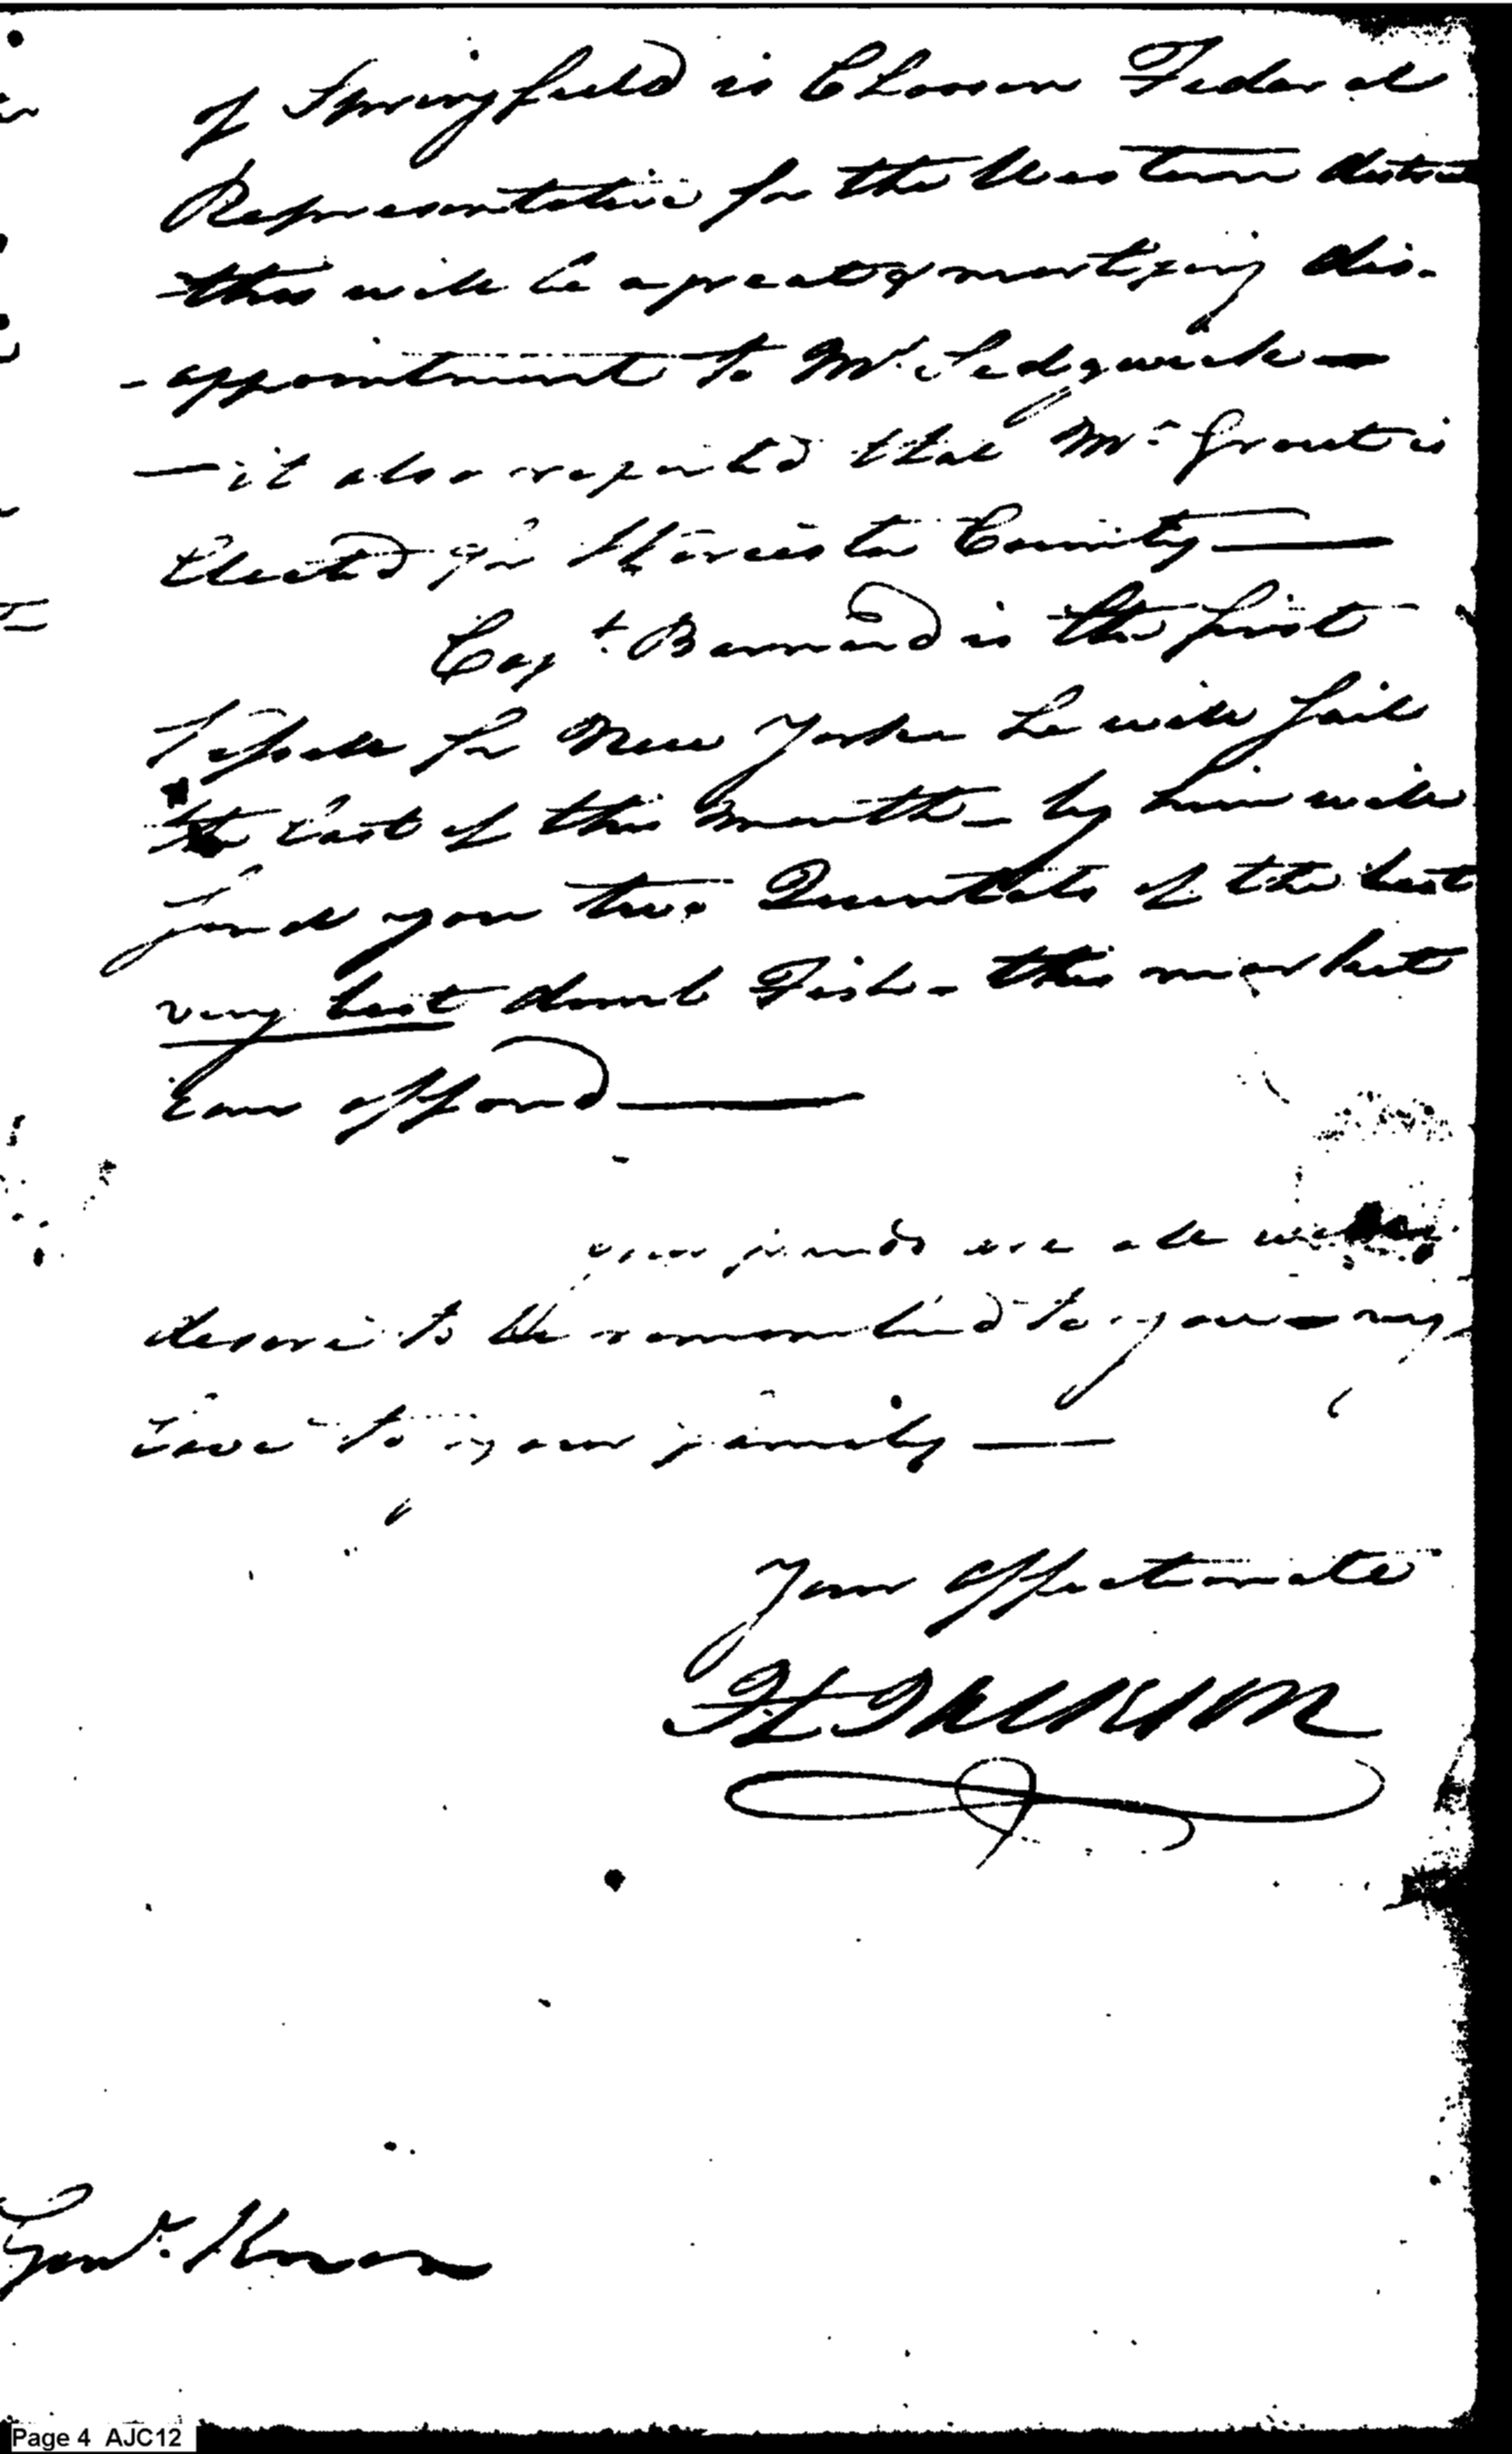 of Springfield is Chosen Federal
Representative for the Western district
this will be a great & mortifying dis-
-appointment to Mr. Sedgwick —
— it also reported that Mr Grout is
Elected for Worcester County —
Capt Barnard is the first
Vessell for New York he will sail
the last of this Month – by him will
send you two Quintals of the best
very best dumb Fish – this market
can afford —
your friends are all well
desire to be remembred to you – my
love to your family —
Your affectionate
H Jackson
Genl. Knox
Page 4 AJC12